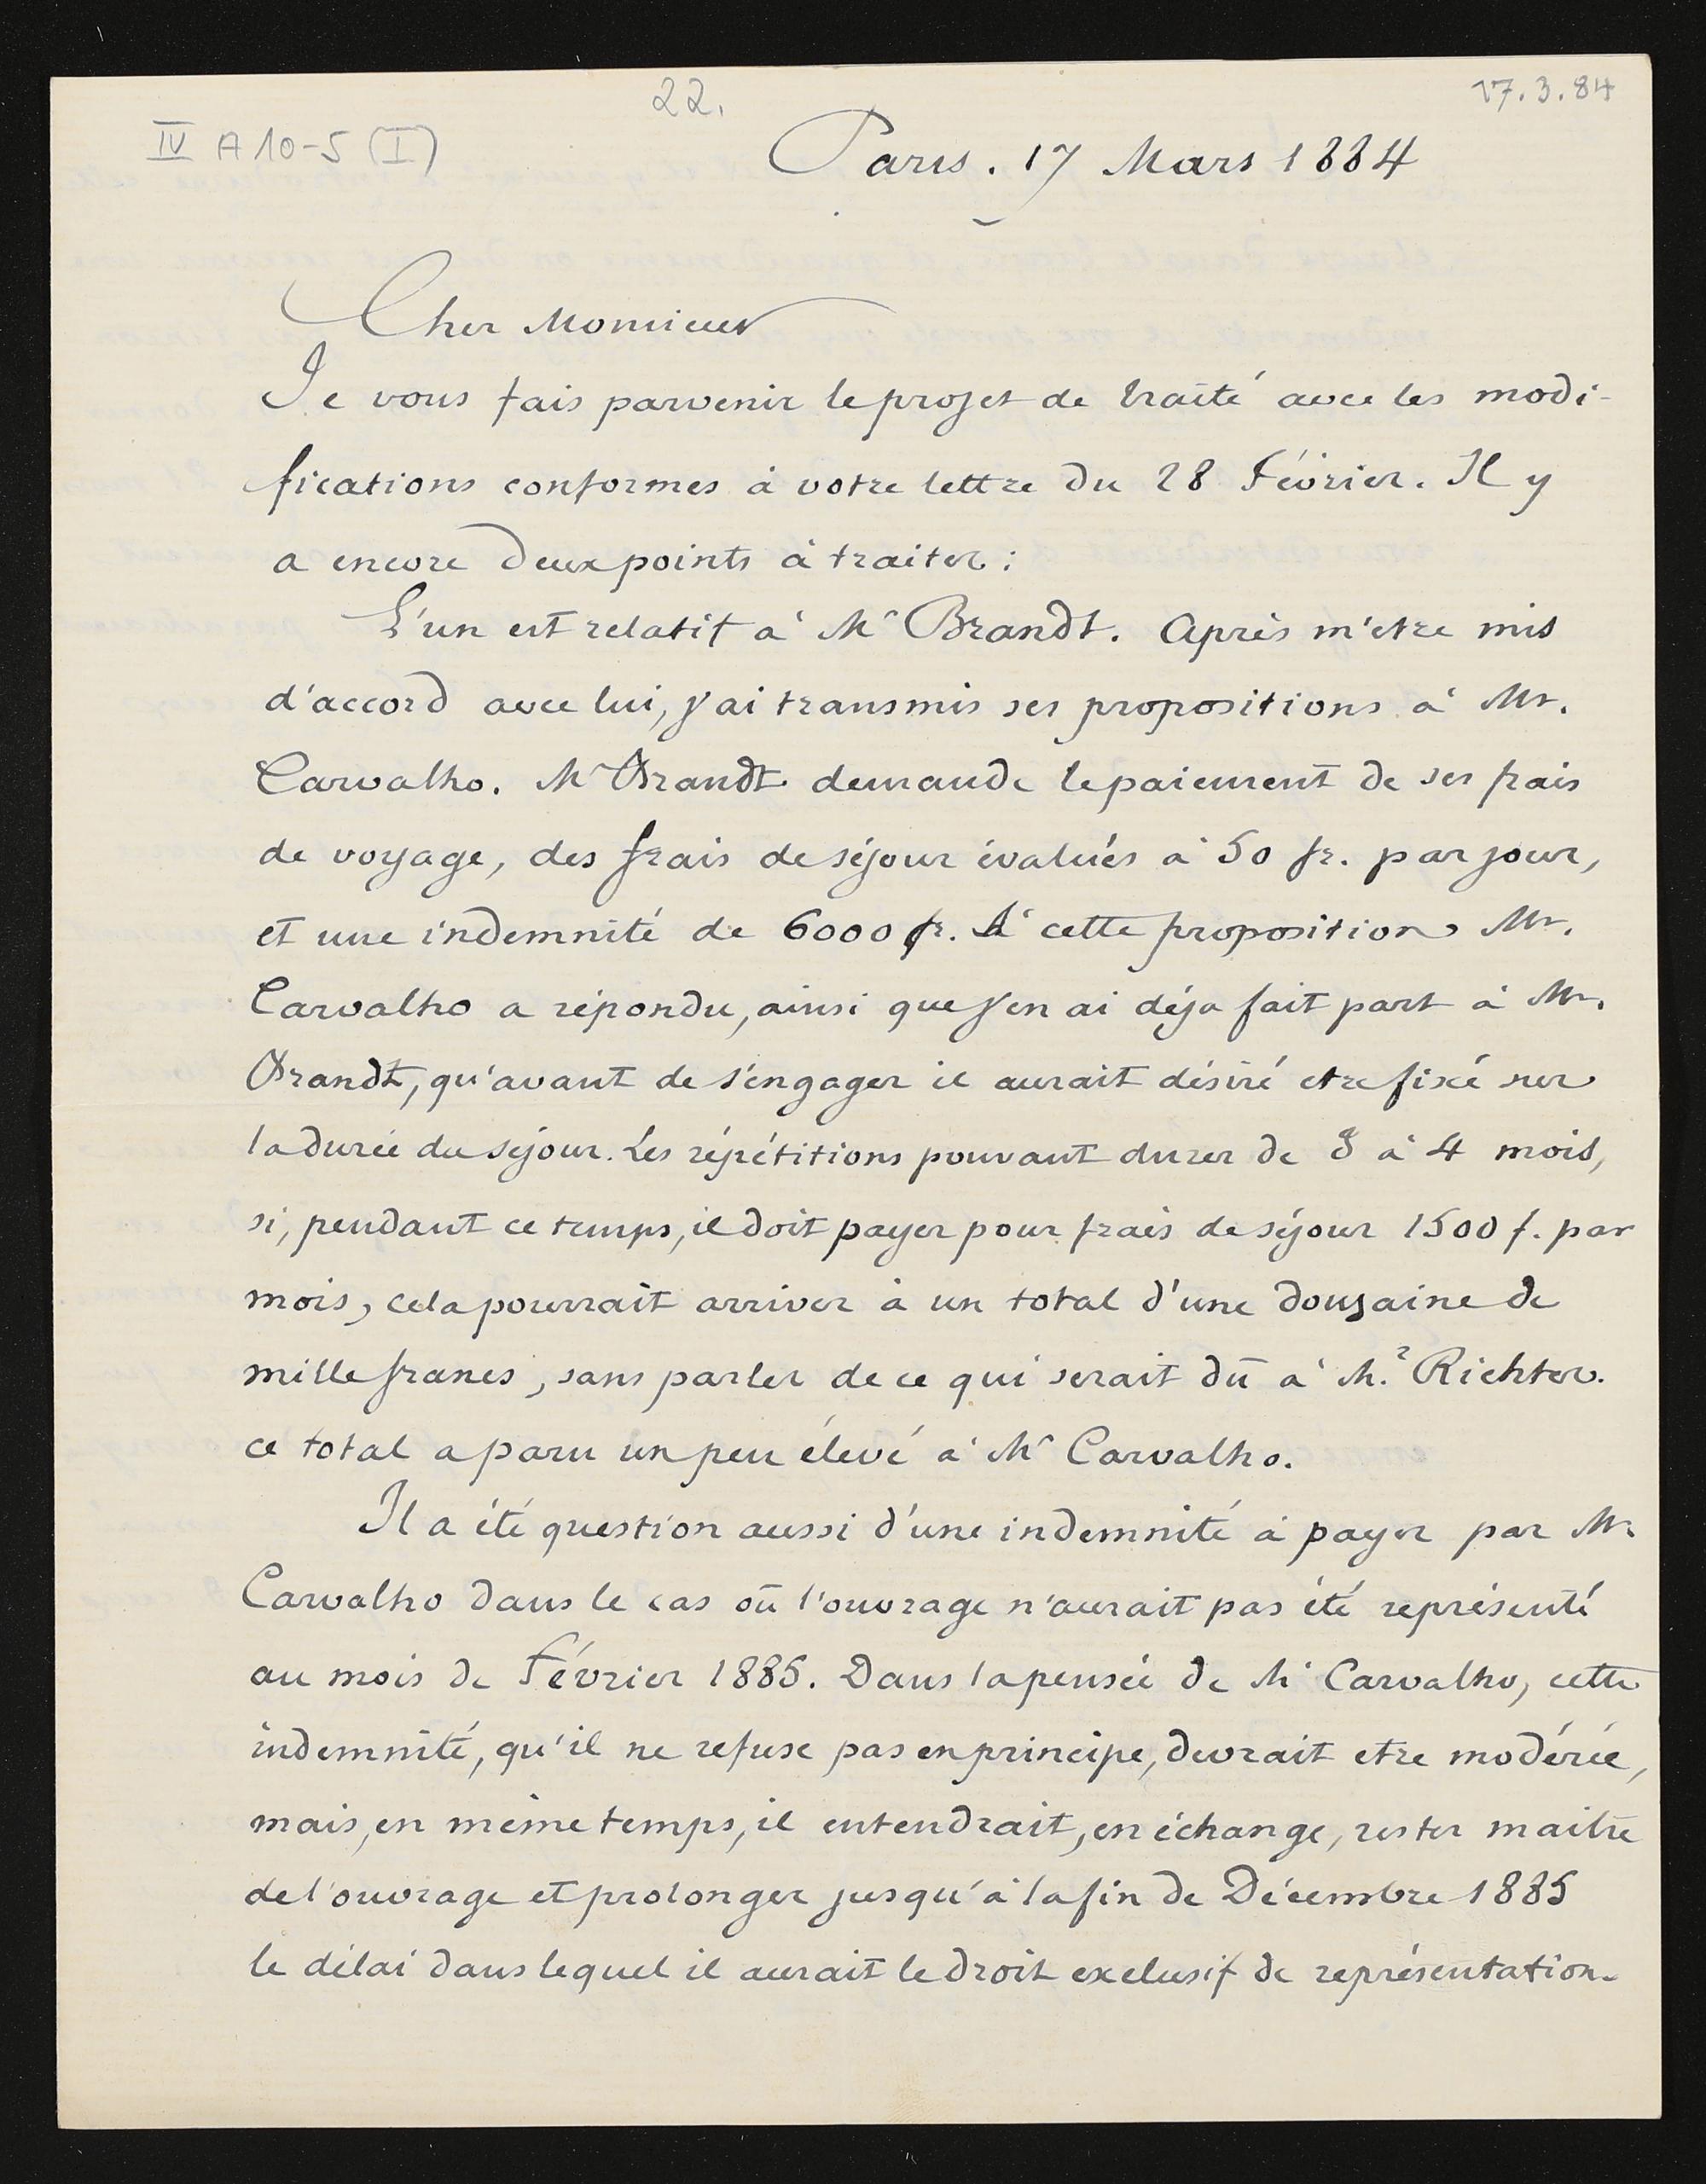 22.
17.3.84
IV A 10-5 (I)
Paris. 17 Mars 1884
Cher Monsieur
Je vous fais parvenir le projet de traité avec les modi-
fications conformes à votre lettre du 28 Février. Il y
a encore deux points à traiter :
L'un est relatif à Mr Brandt. Après m'etre mis
d'accord avec lui, j'ai transmis ses propositions à Mr.
Carvalho. Mr Brandt demande le paiement de ses frais
de voyage, des frais de séjour évalués à 50 fr. par jour,
et une indemnité de 6000 fr. A cette proposition Mr.
Carvalho a répondu, ainsi que j'en ai déja fait part à Mr.
Brandt, qu'avant de s'engager il aurait désiré etre fixé sur
la durée du séjour. Les répétitions pouvant durer de 3 à 4 mois,
si, pendant ce temps, il doit payer pour frais de séjour 1500 f. par
mois, cela pourrait arriver à un total d'une douzaine de
mille francs, sans parler de ce qui serait dû à Mr. Richter.
ce total a paru un peu élevé à Mr Carvalho.
Il a été question aussi d'une indemnité à payer par Mr
Carvalho dans le cas où l'ouvrage n'aurait pas été représenté
au mois de Février 1885. Dans la pensée de Mr Carvalho, cette
indemnité, qu'il ne refuse pas en principe, devrait etre modérée,
mais, en même temps, il entendrait, en échange, rester maitre
de l'ouvrage et prolonger jusqu'à la fin de Décembre 1885
le délai dans lequel il aurait le droit exclusif de représentation.